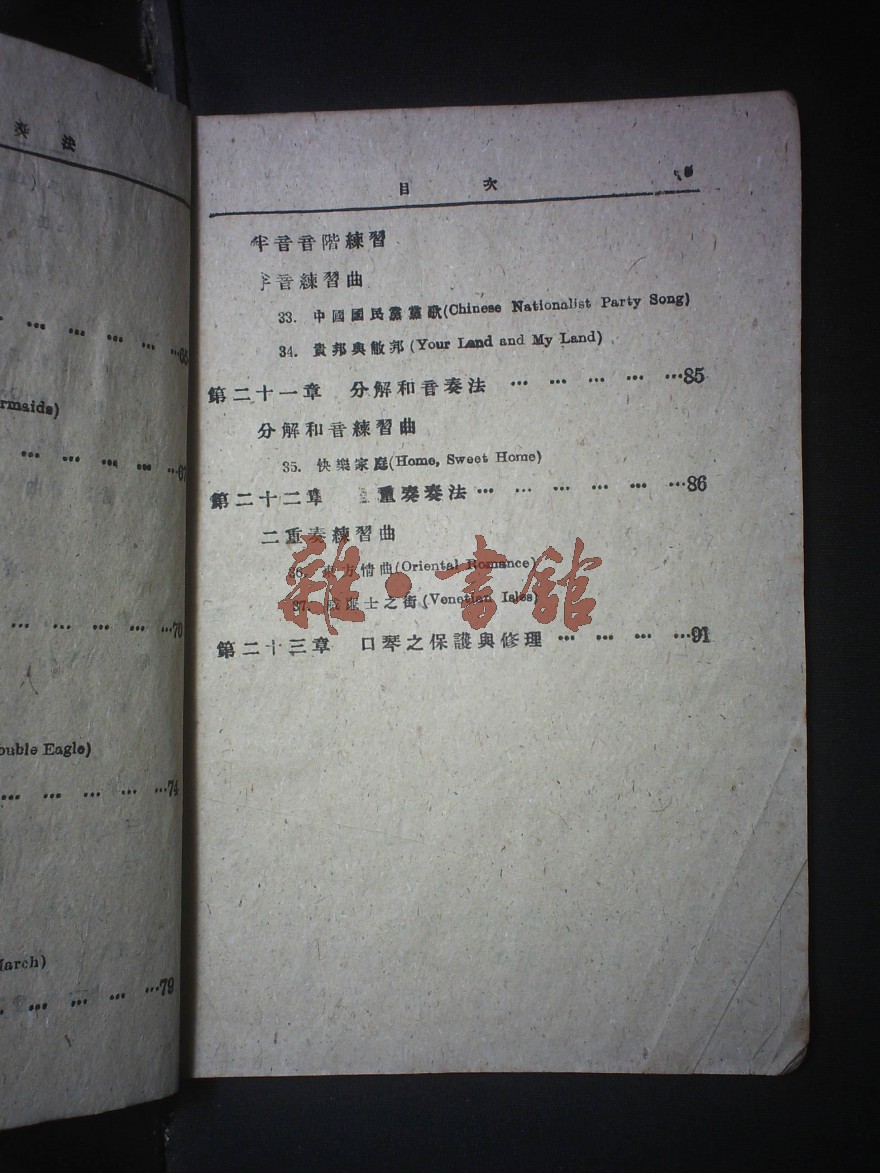 奏法
65
rmaids)
67
70
ouble Eagle)
74
March)
79
目 次
半音音階練習
半音練習曲
33. 中國國民黨黨歌(Chinese Nationalist Party Song)
34. 貴邦與敝邦(Your Land and My Land)
第二十一章 分解和音奏法 … … … … …85
分解和音練習曲
35. 快樂家庭(Home, Sweet Home)
第二十二章 重奏奏法… … … … … …86
二重奏練習曲
36. 東方情曲(Oriental Romance)
37. 士之街(Venetian Isles)
第二十三章 口琴之保護與修理 … … … …91
雜·書館